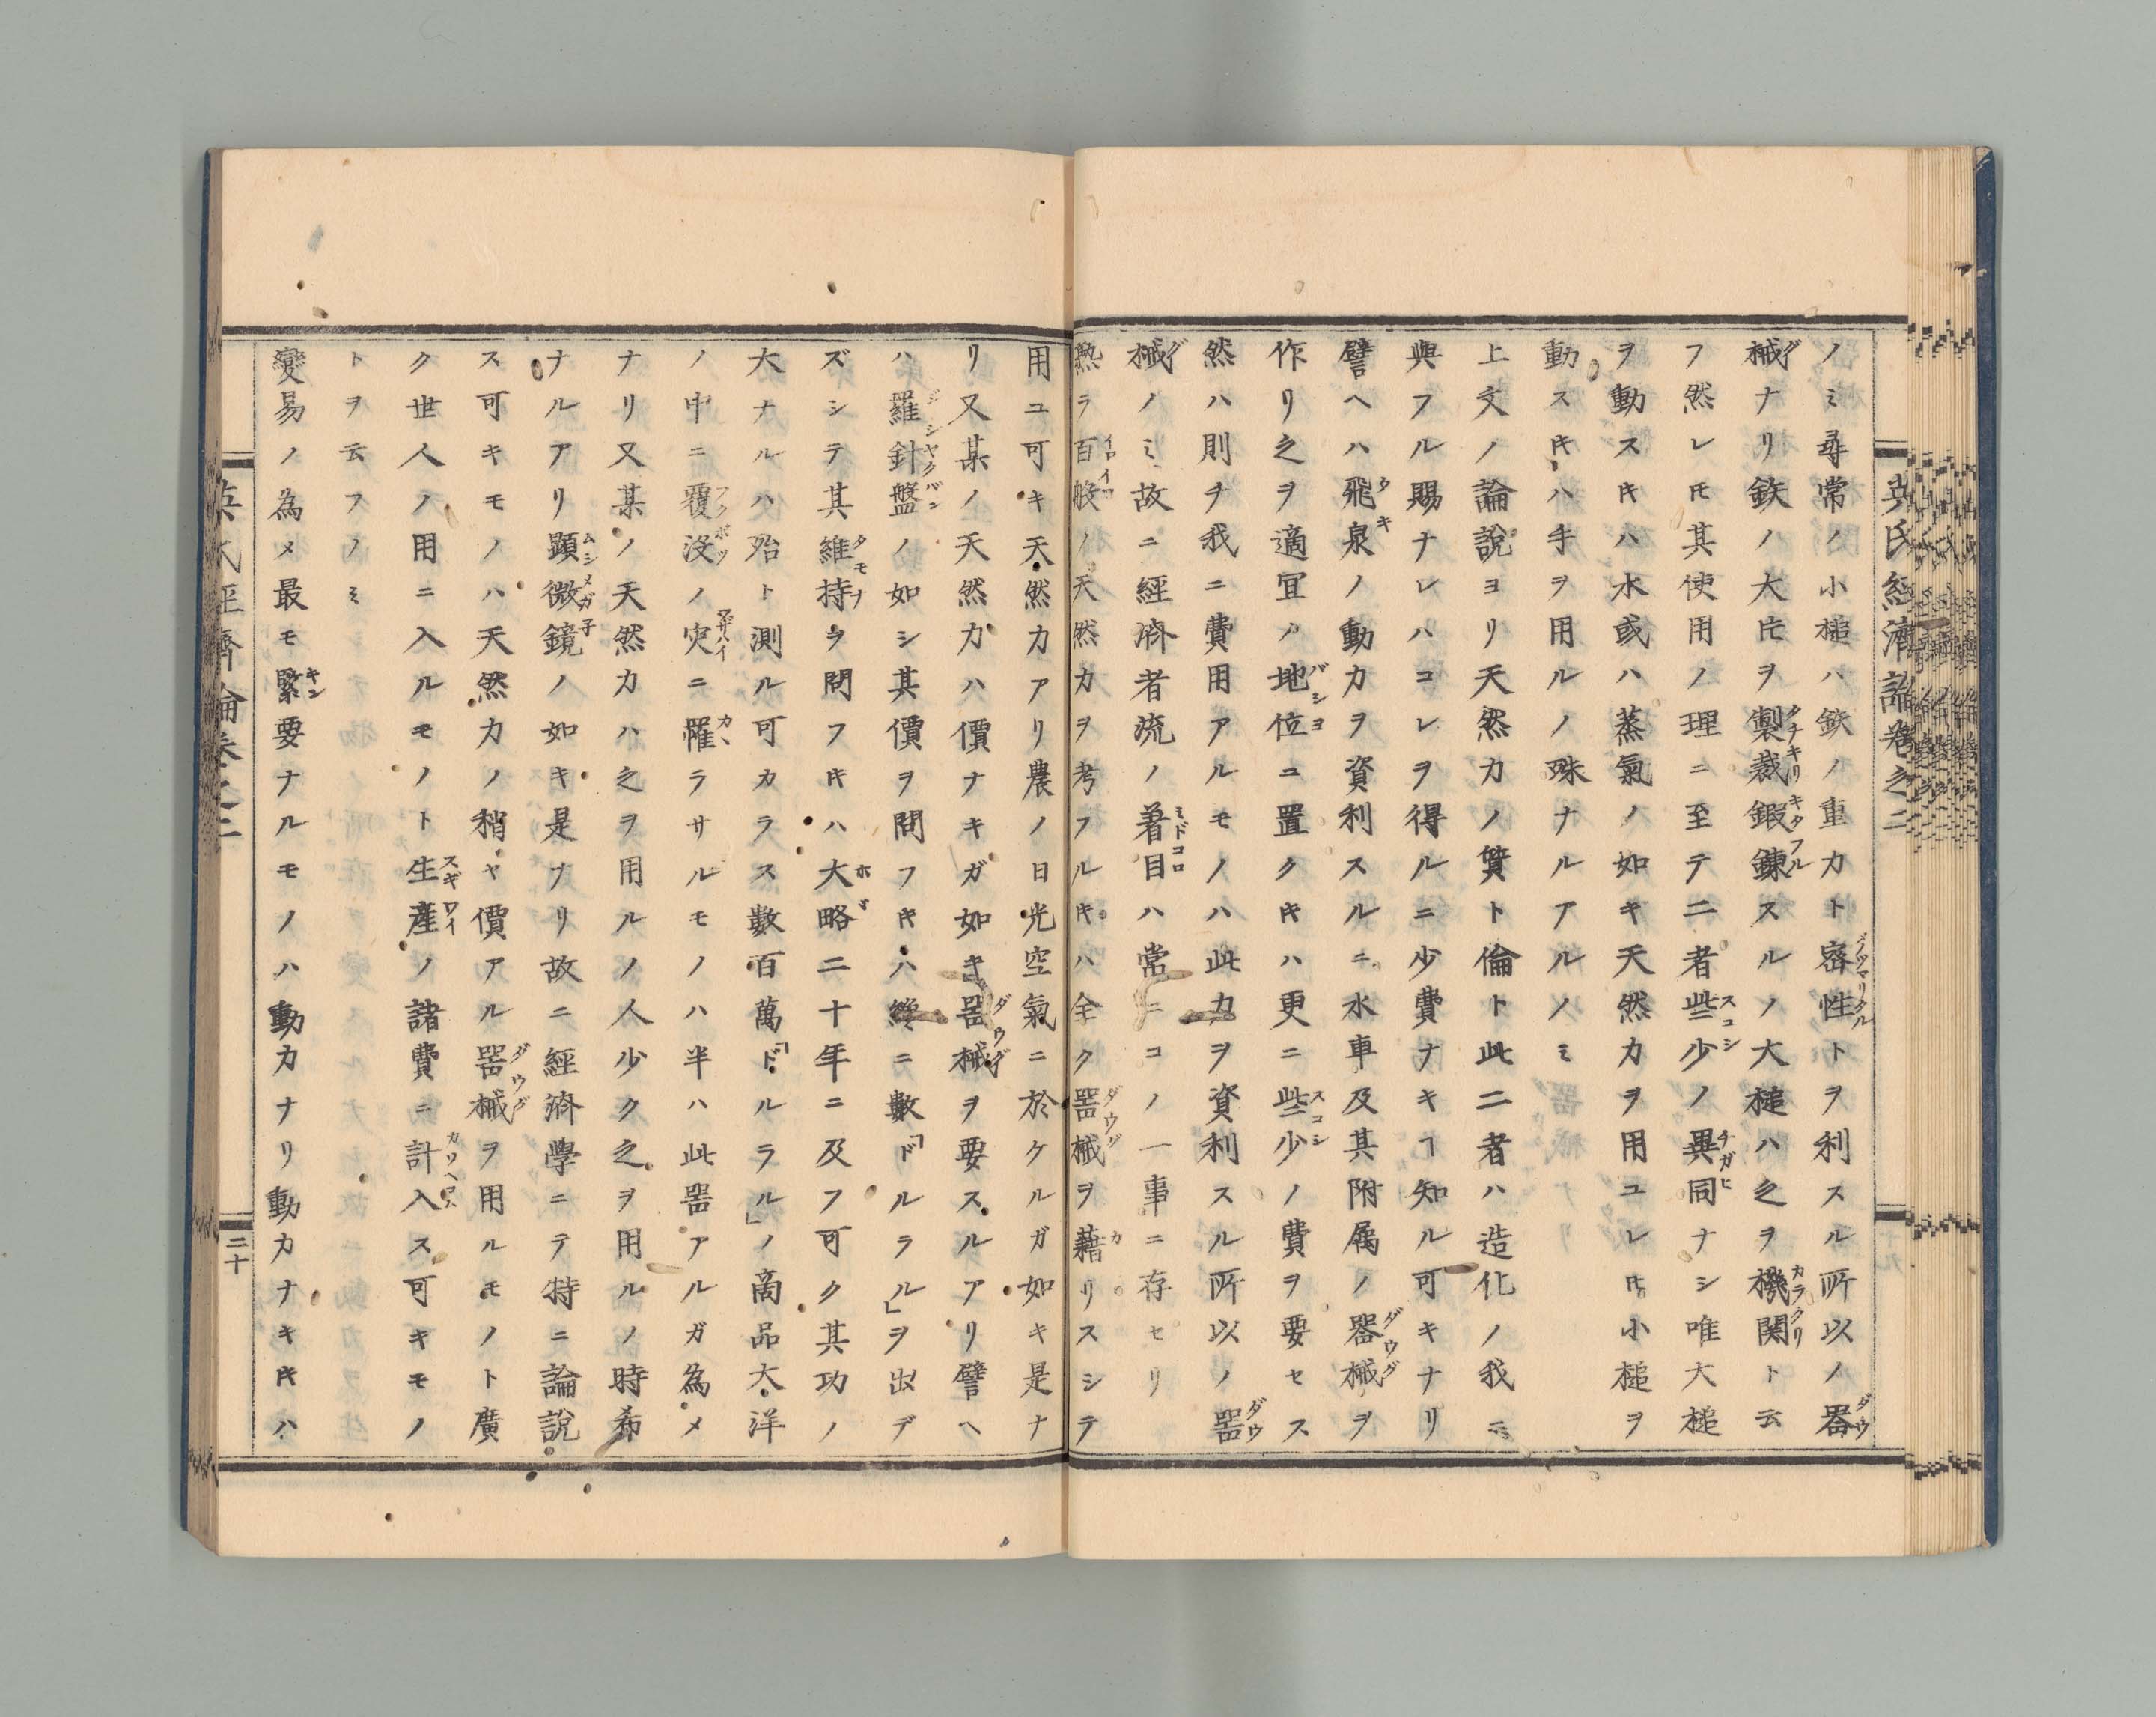 英氏經濟論卷之二
ノミ尋常ノ小槌ハ鉄ノ重力ト密性トヲ利スル所以ノ器
械ナリ鉄ノ大片ヲ製裁鍜鍊スルノ大槌ハ之ヲ機関ト云
フ然レ𪜈其使用ノ理ニ至テ二者些少ノ異同ナシ唯大槌
ヲ動スキハ水或ハ蒸氣ノ如キ天然力ヲ用ユレ𪜈小槌ヲ
動スキハ手ヲ用ルノ殊ナルアルノミ
上文ノ論說ヨリ天然力ノ質ト倫ト此二者ハ造化ノ我ニ
與フル賜ナレハコレヲ得ルニ少費ナキヿ知ル可キナリ
譬ヘハ飛泉ノ動力ヲ資利スルニ水車及其附属ノ器械ヲ
作リ之ヲ適宜ノ地位ニ置クキハ更ニ些少ノ費ヲ要セス
然ハ則チ我ニ費用アルモノハ此力ヲ資利スル所以ノ器
械ノミ故ニ經濟者流ノ着目ハ常ニコノ一事ニ存セリ
熟ラ百般ノ天然力ヲ考フルキハ全ク器械ヲ藉リスシテ
用ユ可キ天然力アリ農ノ日光空氣ニ於ケルガ如キ是ナ
リ又某ノ天然力ハ價ナキガ如キ器械ヲ要スルアリ譬ヘ
ハ羅針盤ノ如シ其價ヲ問フキハ纔ニ數「ドルラル」ヲ出デ
ズシテ其維持ヲ問フキハ大略二十年ニ及フ可ク其功ノ
大ナルハ殆ト測ル可カラス數百萬「ドルラル」ノ商品大洋
ノ中ニ覆沒ノ灾ニ罹ラサルモノハ半ハ此器アルガ為メ
ナリ又某ノ天然力ハ之ヲ用ルノ人少ク之ヲ用ルノ時希
ナルアリ顕微鏡ノ如キ是ナリ故ニ經濟學ニテ特ニ論說
ス可キモノハ天然力ノ稍ヤ價アル器械ヲ用ルモノト廣
ク世人ノ用ニ入ルモノト生產ノ諸費ニ計入ス可キモノ
トヲ云フノミ
變易ノ為メ最モ緊要ナルモノハ動力ナリ動力ナキキハ
二十